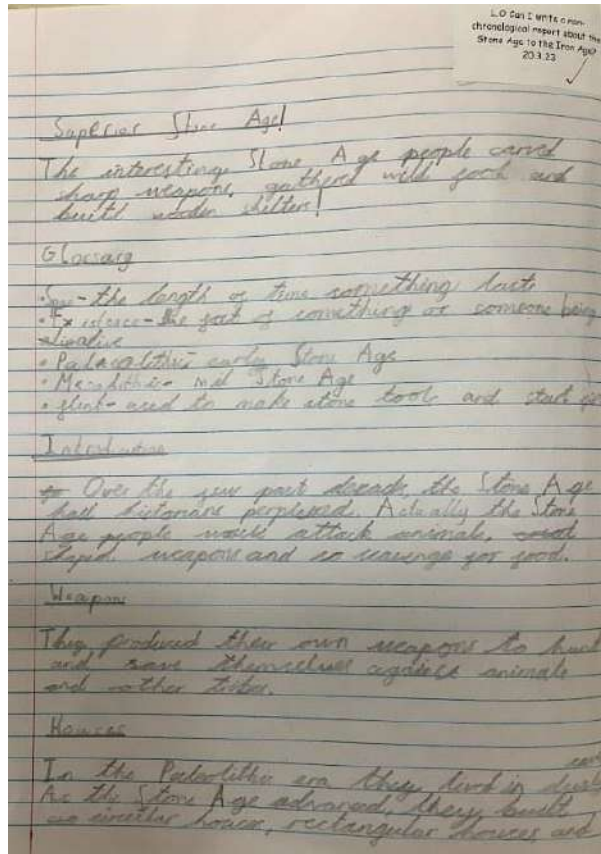 L.O Can I write a non-
chronological report about the
Stone Age to the Iron Age?
20.3.23
Superior Stone Age!
The interesting Stone Age people carved
sharp weapons, gathered wild food and
built wooden shelters!
Glossary
- the length of time something lasts
the fact of something or someone being
alive
• Palaeolithic early Stone Age
- mid Stone Age
• flint- used to make stone tools and start
Introduction
Over the few past decades, the Stone Age
had historians perplexed. Actually the Stone
Age people would attack animals,
weapons and so scavenge for food.
Weapons
They produced their own weapons to hunt
and save themselves against animals
and other tribes.
Houses
In the era they lived in
As the Stone Age advanced, they built
circular houses, rectangular houses and